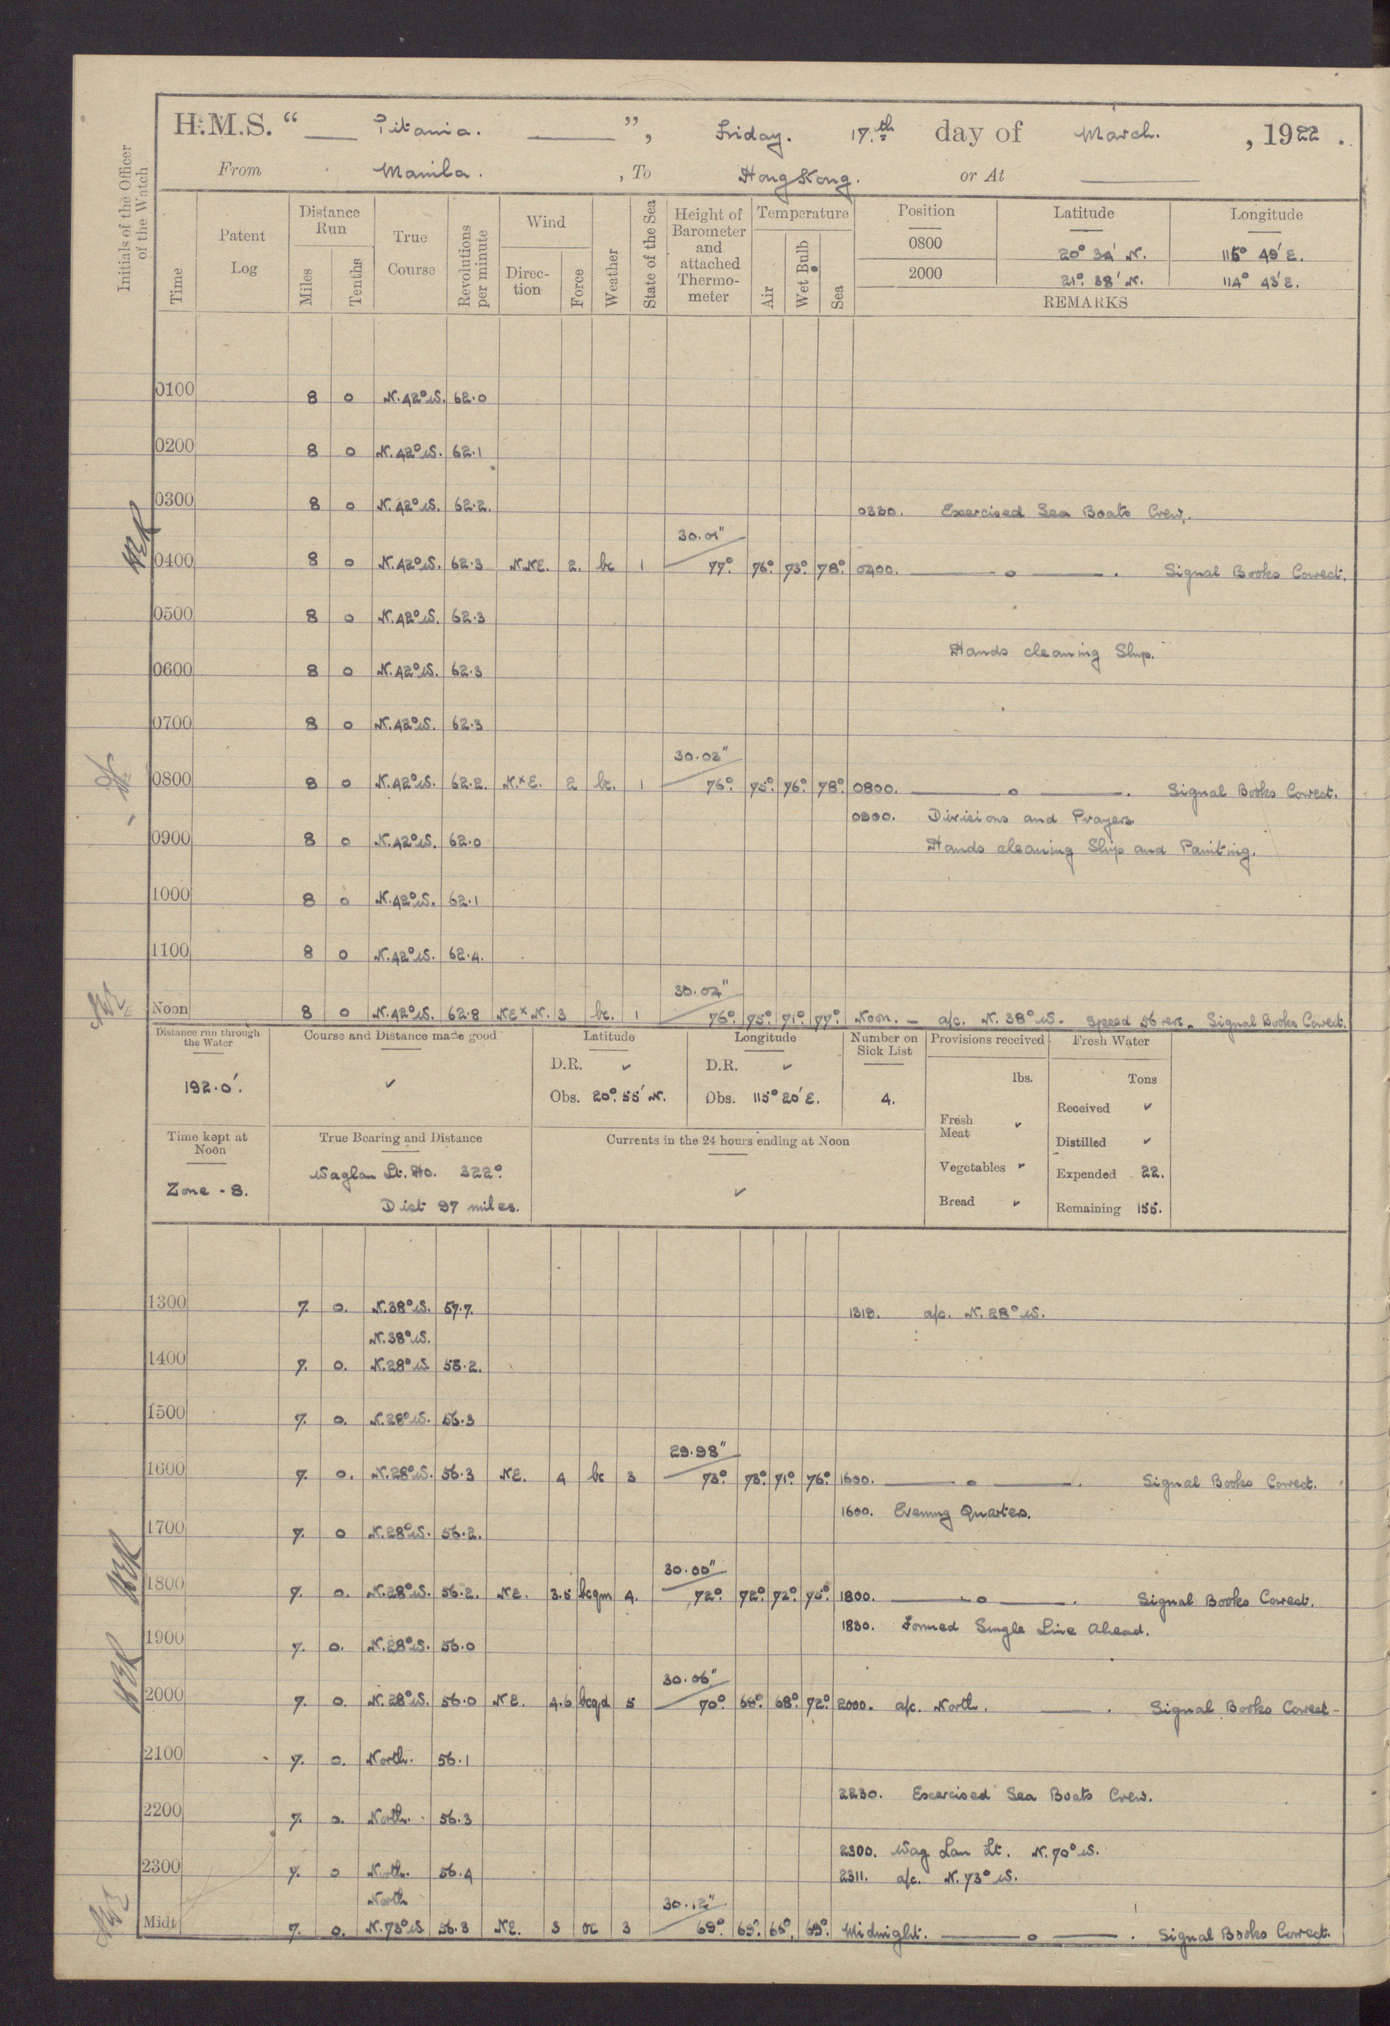 H.M.S. “ Titania. ”, Friday. 17.th day of March. , 1922 .
From Manila. , To Hong Kong. or At
Initials of the Officer of the Watch
Time Patent Log Distance Run Miles Tenths True Course Revolutions per minute Wind Direction Force Weather State of the Sea Height of Barometer and attached Thermometer Temperature Air Wet Bulb Sea Position Latitude Longitude
0800 20° 34' N. 115° 49' E.
2000 21° 38' N. 114° 43' E.
REMARKS
0100 8 0 N.42°W. 62.0
0200 8 0 N.42°W. 62.1
0300 8 0 N.42°W. 62.2.
0330. Exercised Sea Boats Crew.
30.01"
0400 8 0 N.42°W. 62.3 N.NE. 2. bc 1 77° 76° 73° 78° 0400. o Signal Books Correct.
0500 8 0 N.42°W. 62.3
Hands cleaning Ship.
0600 8 0 N.42°W. 62.3
0700 8 0 N.42°W. 62.3
30.02"
0800 8 0 N.42°W. 62.2. N.xE. 2 bc. 1 76° 75° 76° 78° 0800. o Signal Books Correct.
0900. Divisions and Prayers
0900 8 0 N.42°W. 62.0 Hands cleaning Ship and Painting.
1000 8 0 N.42°W. 62.1
1100 8 0 N.42°W. 62.4.
30.04"
Noon 8 0 N.42°W. 62.8 NExN. 3 bc. 1 76° 75° 71° 77° Noon. – a/c. N. 38° W. Speed 56 revs. Signal Books Correct.
Distance run through the Water Course and Distance made good Latitude Longitude Number on Sick List Provisions received Fresh Water
192.0'. ✓ D.R. ✓ D.R. ✓ lbs. Tons
Obs. 20° 55' N. Obs. 115° 20' E. 4. Received ✓
Fresh Meat ✓
Time kept at Noon True Bearing and Distance Currents in the 24 hours ending at Noon Distilled ✓
Waglan Lt. Ho. 322° Vegetables ✓ Expended 22.
Zone - 8. Dist 97 miles. ✓ Bread ✓ Remaining 155.
1300 7. 0. N.38°W. 57.7. 1318. a/c. N. 28° W.
N.38°W.
1400 7. 0. N.28°W 56.2.
1500 7. 0. N.28°W. 56.3
29.98"
1600 7. 0. N.28°W. 56.3 NE. 4 bc 3 73° 73° 71° 76° 1600. o Signal Books Correct.
1600. Evening Quarters.
1700 7. 0 N.28°W. 56.2.
30.00"
1800 7. 0. N.28°W. 56.2. NE. 3.5 bcqm 4. 72° 72° 72° 75° 1800. o Signal Books Correct.
1830. Formed Single Line Ahead.
1900 7. 0. N.28°W. 56.0
30.06"
2000 7. 0. N.28°W. 56.0 NE. 4.6 bcqd 5 70° 68° 68° 72° 2000. a/c. North. Signal Books Correct
2100 7. 0. North. 56.1
2230. Exercised Sea Boats Crew.
2200 7. 0. North. 56.3
2300. Wag Lan Lt. N.70°W.
2300 7. 0 North. 56.4 2311. a/c. N.73°W.
North 30.12"
Midt 7. 0. N.73°W 56.3 NE. 3 oc 3 69° 69° 66° 69° Midnight. o Signal Books Correct.